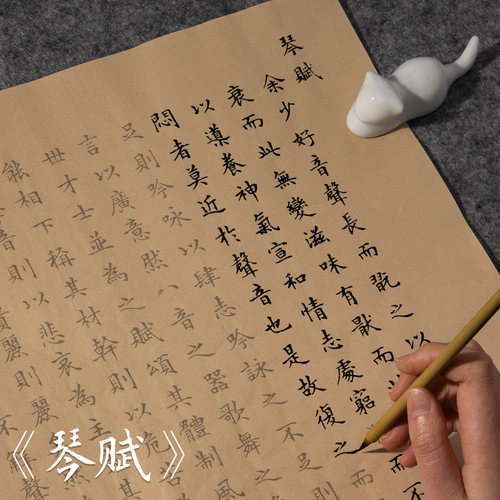 琴賦
余少好音聲長而翫之以
衰而此無變滋味有猒而此
以導養神氣宣和情志處窮而
悶者莫近於聲音也是故復之
足則吟詠以肆志吟詠之不足
言以廣意然八音之器歌舞之
世才士並為之賦頌其體制風
能相下稱其材幹則以危
音則以悲哀為主
麗則麗
不
《琴賦》